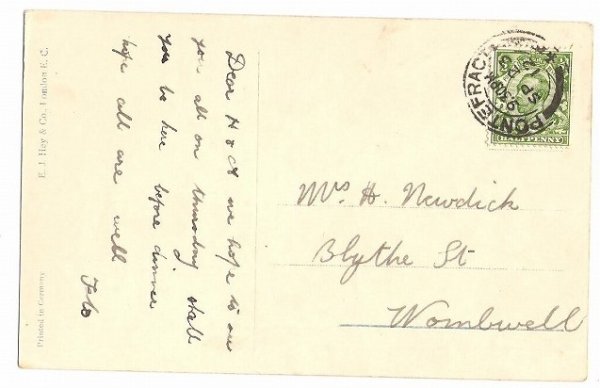 Dear H & A we hope to see
you all on thursday shall
you be here before dinner
hope all are well
Flo
Mrs H. Newdick
Blythe St
Wombwell
PONTEFRACT
HALFPENNY
E. J. Hey & Co., London E. C.
Printed in Germany